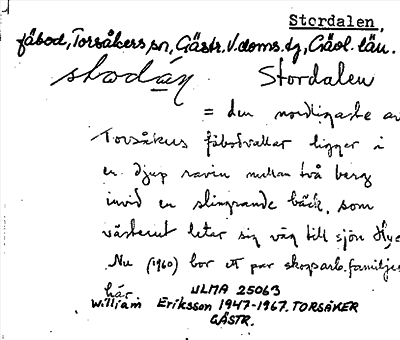 Stordalen,
fäbod, Torsåkers sn, Gästr. V. doms. tg, Gävl. län.
Stordalen
= den nordligaste av
Torsåkers fäbodvallar ligger i
en djup ravin mellan två berg
invid en slingrande bäck, som
västerut letar sig väg till sjön
Nu (1960) bor ett par skogsarb.familjer
här ULMA 25063
William Eriksson 1947-1967. TORSÅKER
GÄSTR.